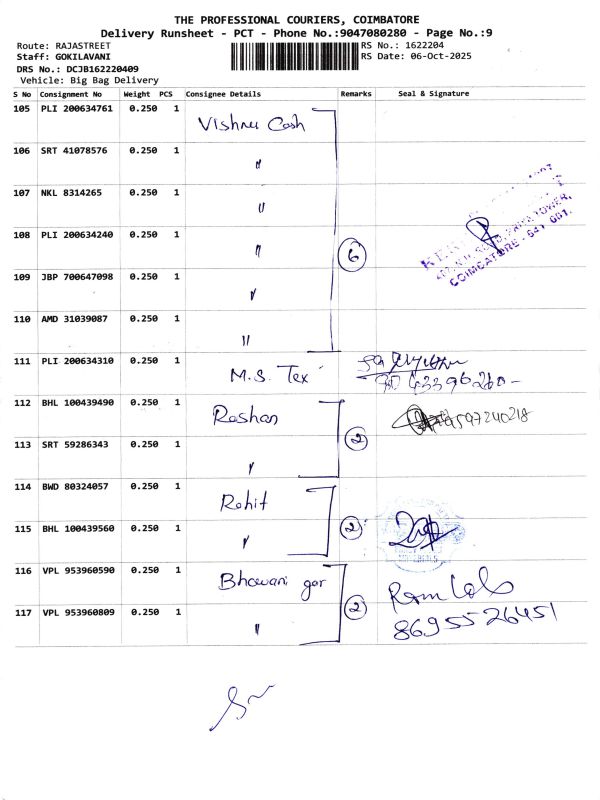 THE PROFESSIONAL COURIERS, COIMBATORE
Delivery Runsheet - PCT - Phone No.:9047080280 - Page No.:9
Route: RAJASTREET
RS No.: 1622204
Staff: GOKILAVANI
RS Date: 06-Oct-2025
DRS No.: DCJB162220409
Vehicle: Big Bag Delivery
S No Consignment No Weight PCS Consignee Details Remarks Seal & Signature
105 PLI 200634761 0.250 1 Vishnu Cash
106 SRT 41078576 0.250 1 "
107 NKL 8314265 0.250 1 "
108 PLI 200634240 0.250 1 " 6
COIMBATORE - 641 001.
109 JBP 700647098 0.250 1 "
110 AMD 31039087 0.250 1 "
111 PLI 200634310 0.250 1 M.S. Tex
112 BHL 100439490 0.250 1 Roshan 2
113 SRT 59286343 0.250 1 "
114 BWD 80324057 0.250 1 Rohit
115 BHL 100439560 0.250 1 " 2
116 VPL 953960590 0.250 1 Bhawani gar 2
117 VPL 953960809 0.250 1 " 8695526451